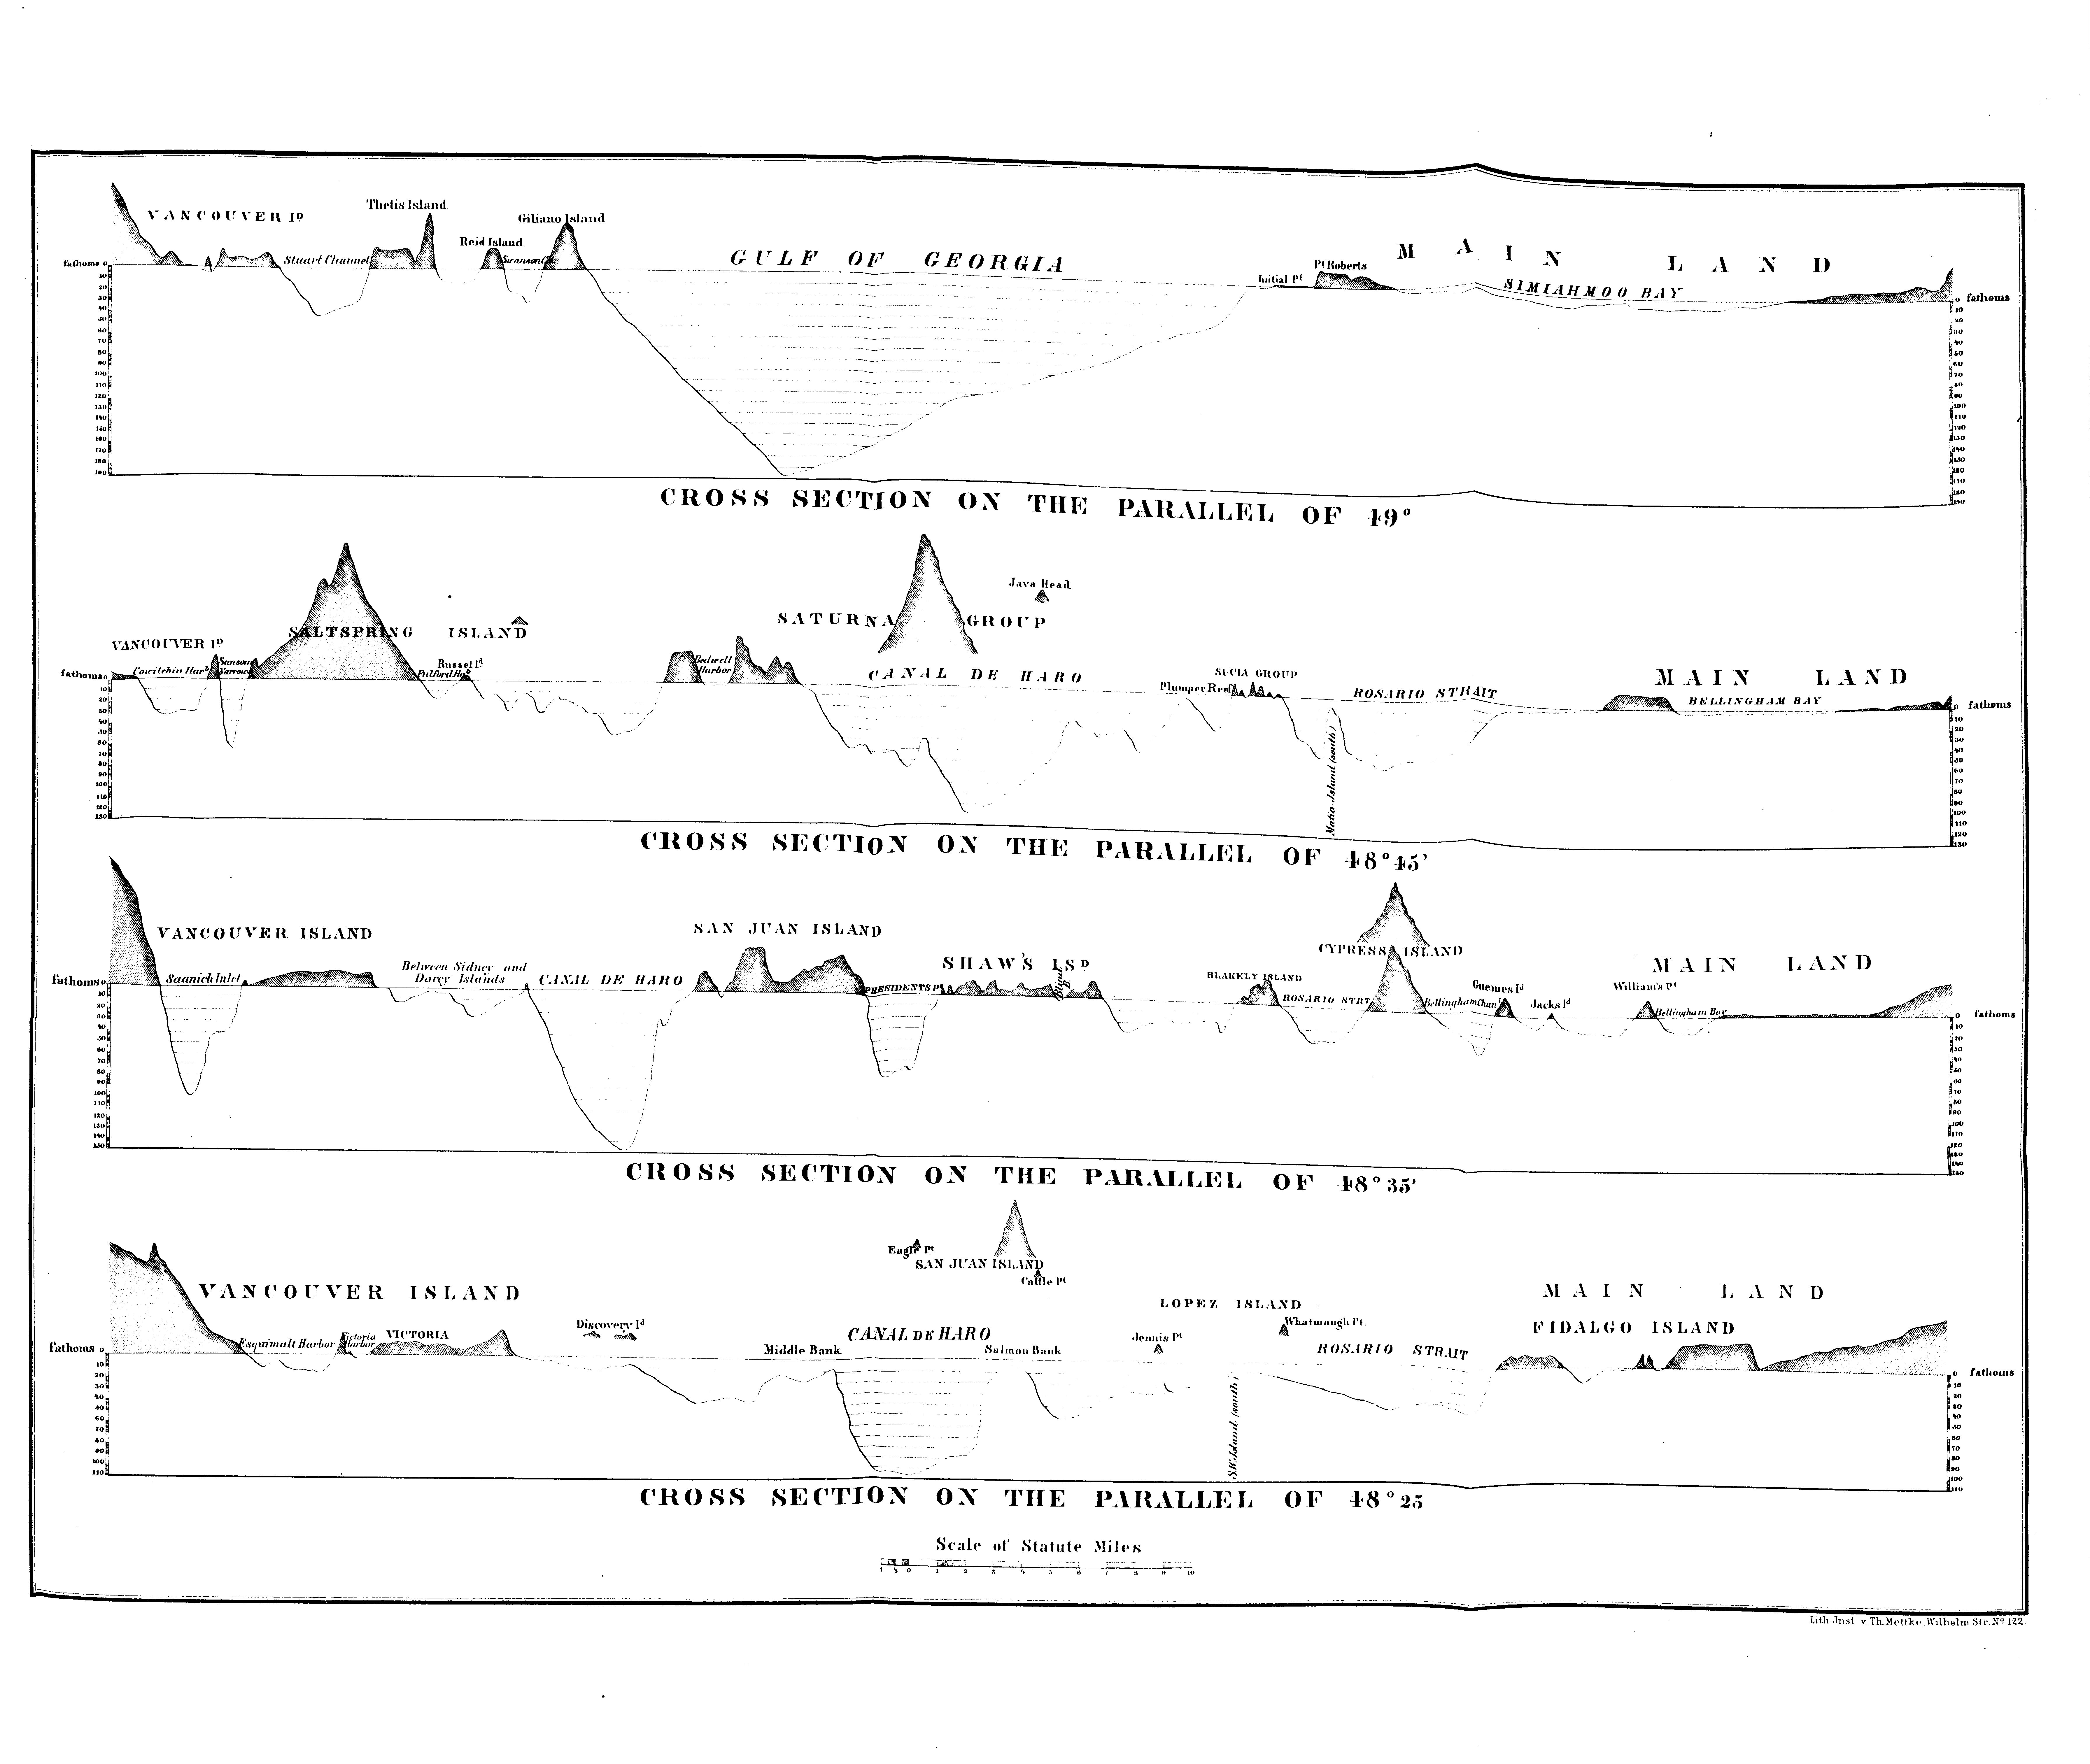 VANCOUVER ID
Thetis Island
Reid Island
Giliano Island
Stuart Channel
GULF OF GEORGIA
Initial Pt
Pt Roberts
MAIN LAND
SIMIAHMOO BAY
fathoms 0
10
20
30
40
50
60
70
80
90
100
110
120
130
140
150
160
170
180
190
0 fathoms
10
20
30
40
50
60
70
80
90
100
110
120
130
140
150
160
170
180
190
CROSS SECTION ON THE PARALLEL OF 49°
VANCOUVER ID
SALTSPRING ISLAND
SATURNA GROUP
Java Head
Cowitchin Harb
Sansom Narrows
Fulford Ho
Russel Id
Bedwell Harbor
CANAL DE HARO
Plumper Reef
SUCIA GROUP
ROSARIO STRAIT
Matia Island (south)
MAIN LAND
BELLINGHAM BAY
fathoms 0
10
20
30
40
50
60
70
80
90
100
110
120
130
0 fathoms
10
20
30
40
50
60
70
80
90
100
110
120
130
CROSS SECTION ON THE PARALLEL OF 48° 45'
VANCOUVER ISLAND
Saanich Inlet
Between Sidney and
Darcy Islands
CANAL DE HARO
SAN JUAN ISLAND
PRESIDENTS Ps
SHAW'S ISD
BLAKELY ISLAND
ROSARIO STRT
CYPRESS ISLAND
Bellingham Chanl
Guemes Id
Jacks Id
William's Pt
Bellingham Bay
MAIN LAND
fathoms 0
10
20
30
40
50
60
70
80
90
100
110
120
130
140
150
0 fathoms
10
20
30
40
50
60
70
80
90
100
110
120
130
140
150
CROSS SECTION ON THE PARALLEL OF 48° 35'
VANCOUVER ISLAND
Esquimalt Harbor
Victoria Harbor
VICTORIA
Discovery Id
Middle Bank
CANAL DE HARO
Eagle Pt
SAN JUAN ISLAND
Cattle Pt
Salmon Bank
Jennis Pt
LOPEZ ISLAND
Whatmaugh Pt.
S.W. Island (south)
ROSARIO STRAIT
MAIN LAND
FIDALGO ISLAND
fathoms 0
10
20
30
40
50
60
70
80
90
100
110
0 fathoms
10
20
30
40
50
60
70
80
90
100
110
CROSS SECTION ON THE PARALLEL OF 48° 25
Scale of Statute Miles
1 ½ 0 1 2 3 4 5 6 7 8 9 10
Lith. Inst v. Th. Mettke, Wilhelm Str. No 122.